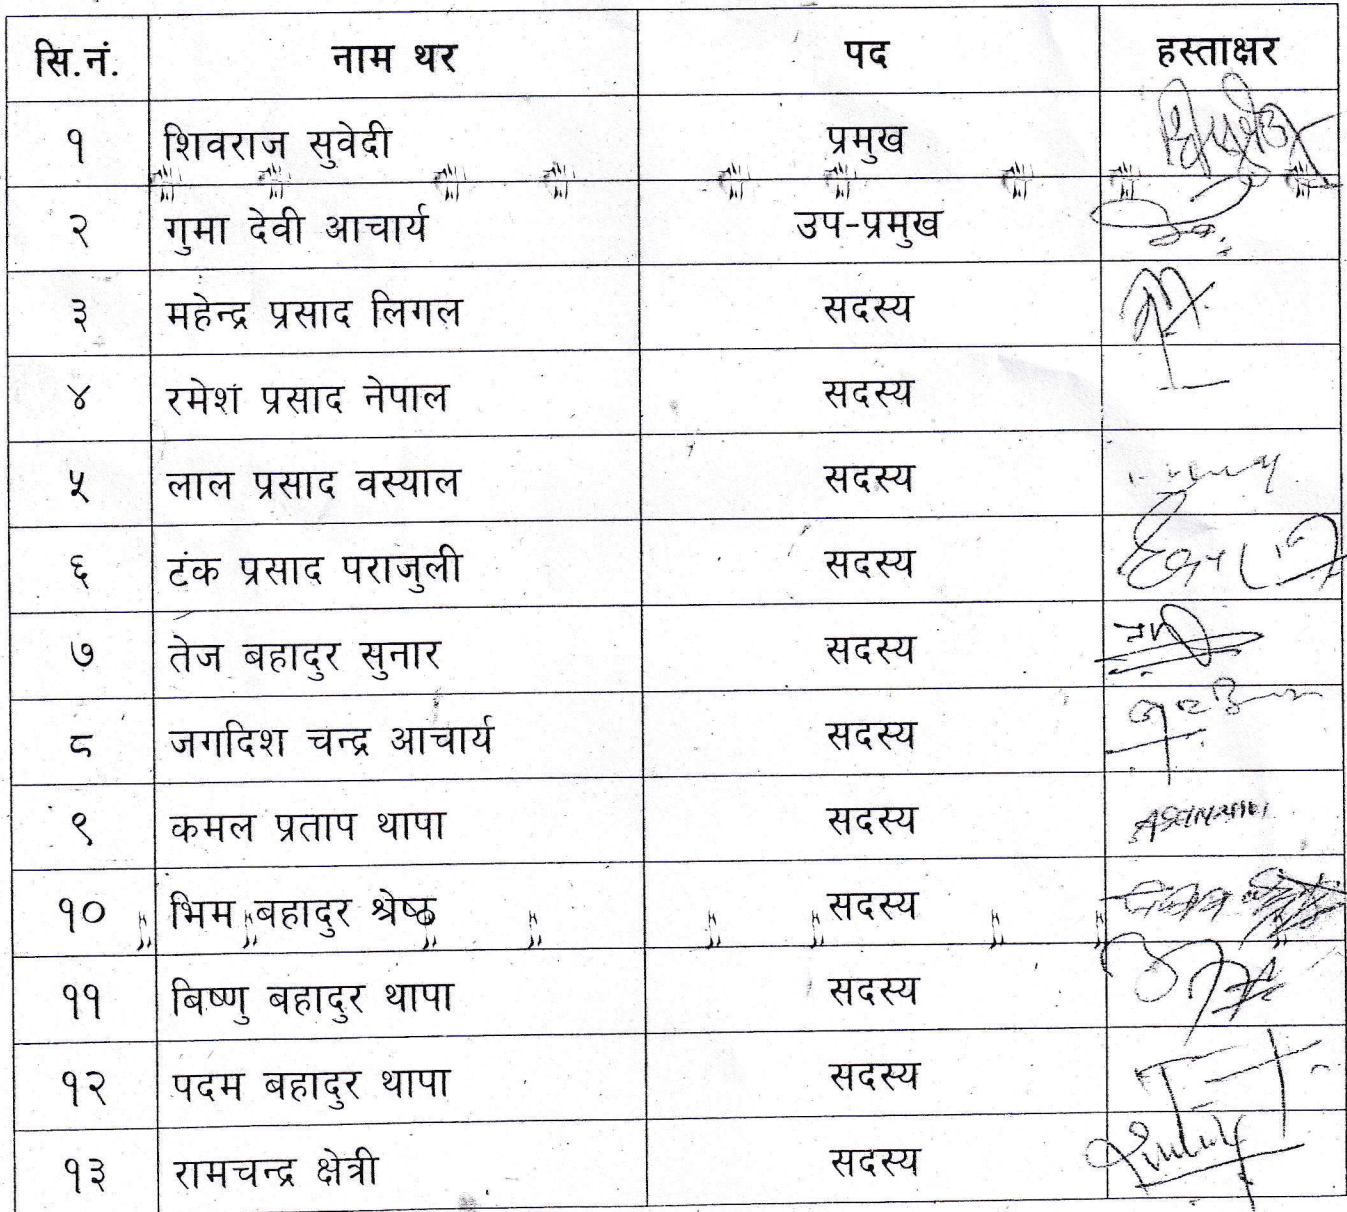 सि.नं. नाम थर पद हस्ताक्षर
१ शिवराज सुवेदी प्रमुख
२ गुमा देवी आचार्य उप-प्रमुख
३ महेन्द्र प्रसाद लिगल सदस्य
४ रमेश प्रसाद नेपाल सदस्य
५ लाल प्रसाद वस्याल सदस्य
६ टंक प्रसाद पराजुली सदस्य
७ तेज बहादुर सुनार सदस्य
८ जगदिश चन्द्र आचार्य सदस्य
९ कमल प्रताप थापा सदस्य
१० भिम बहादुर श्रेष्ठ सदस्य
११ बिष्णु बहादुर थापा सदस्य
१२ पदम बहादुर थापा सदस्य
१३ रामचन्द्र क्षेत्री सदस्य